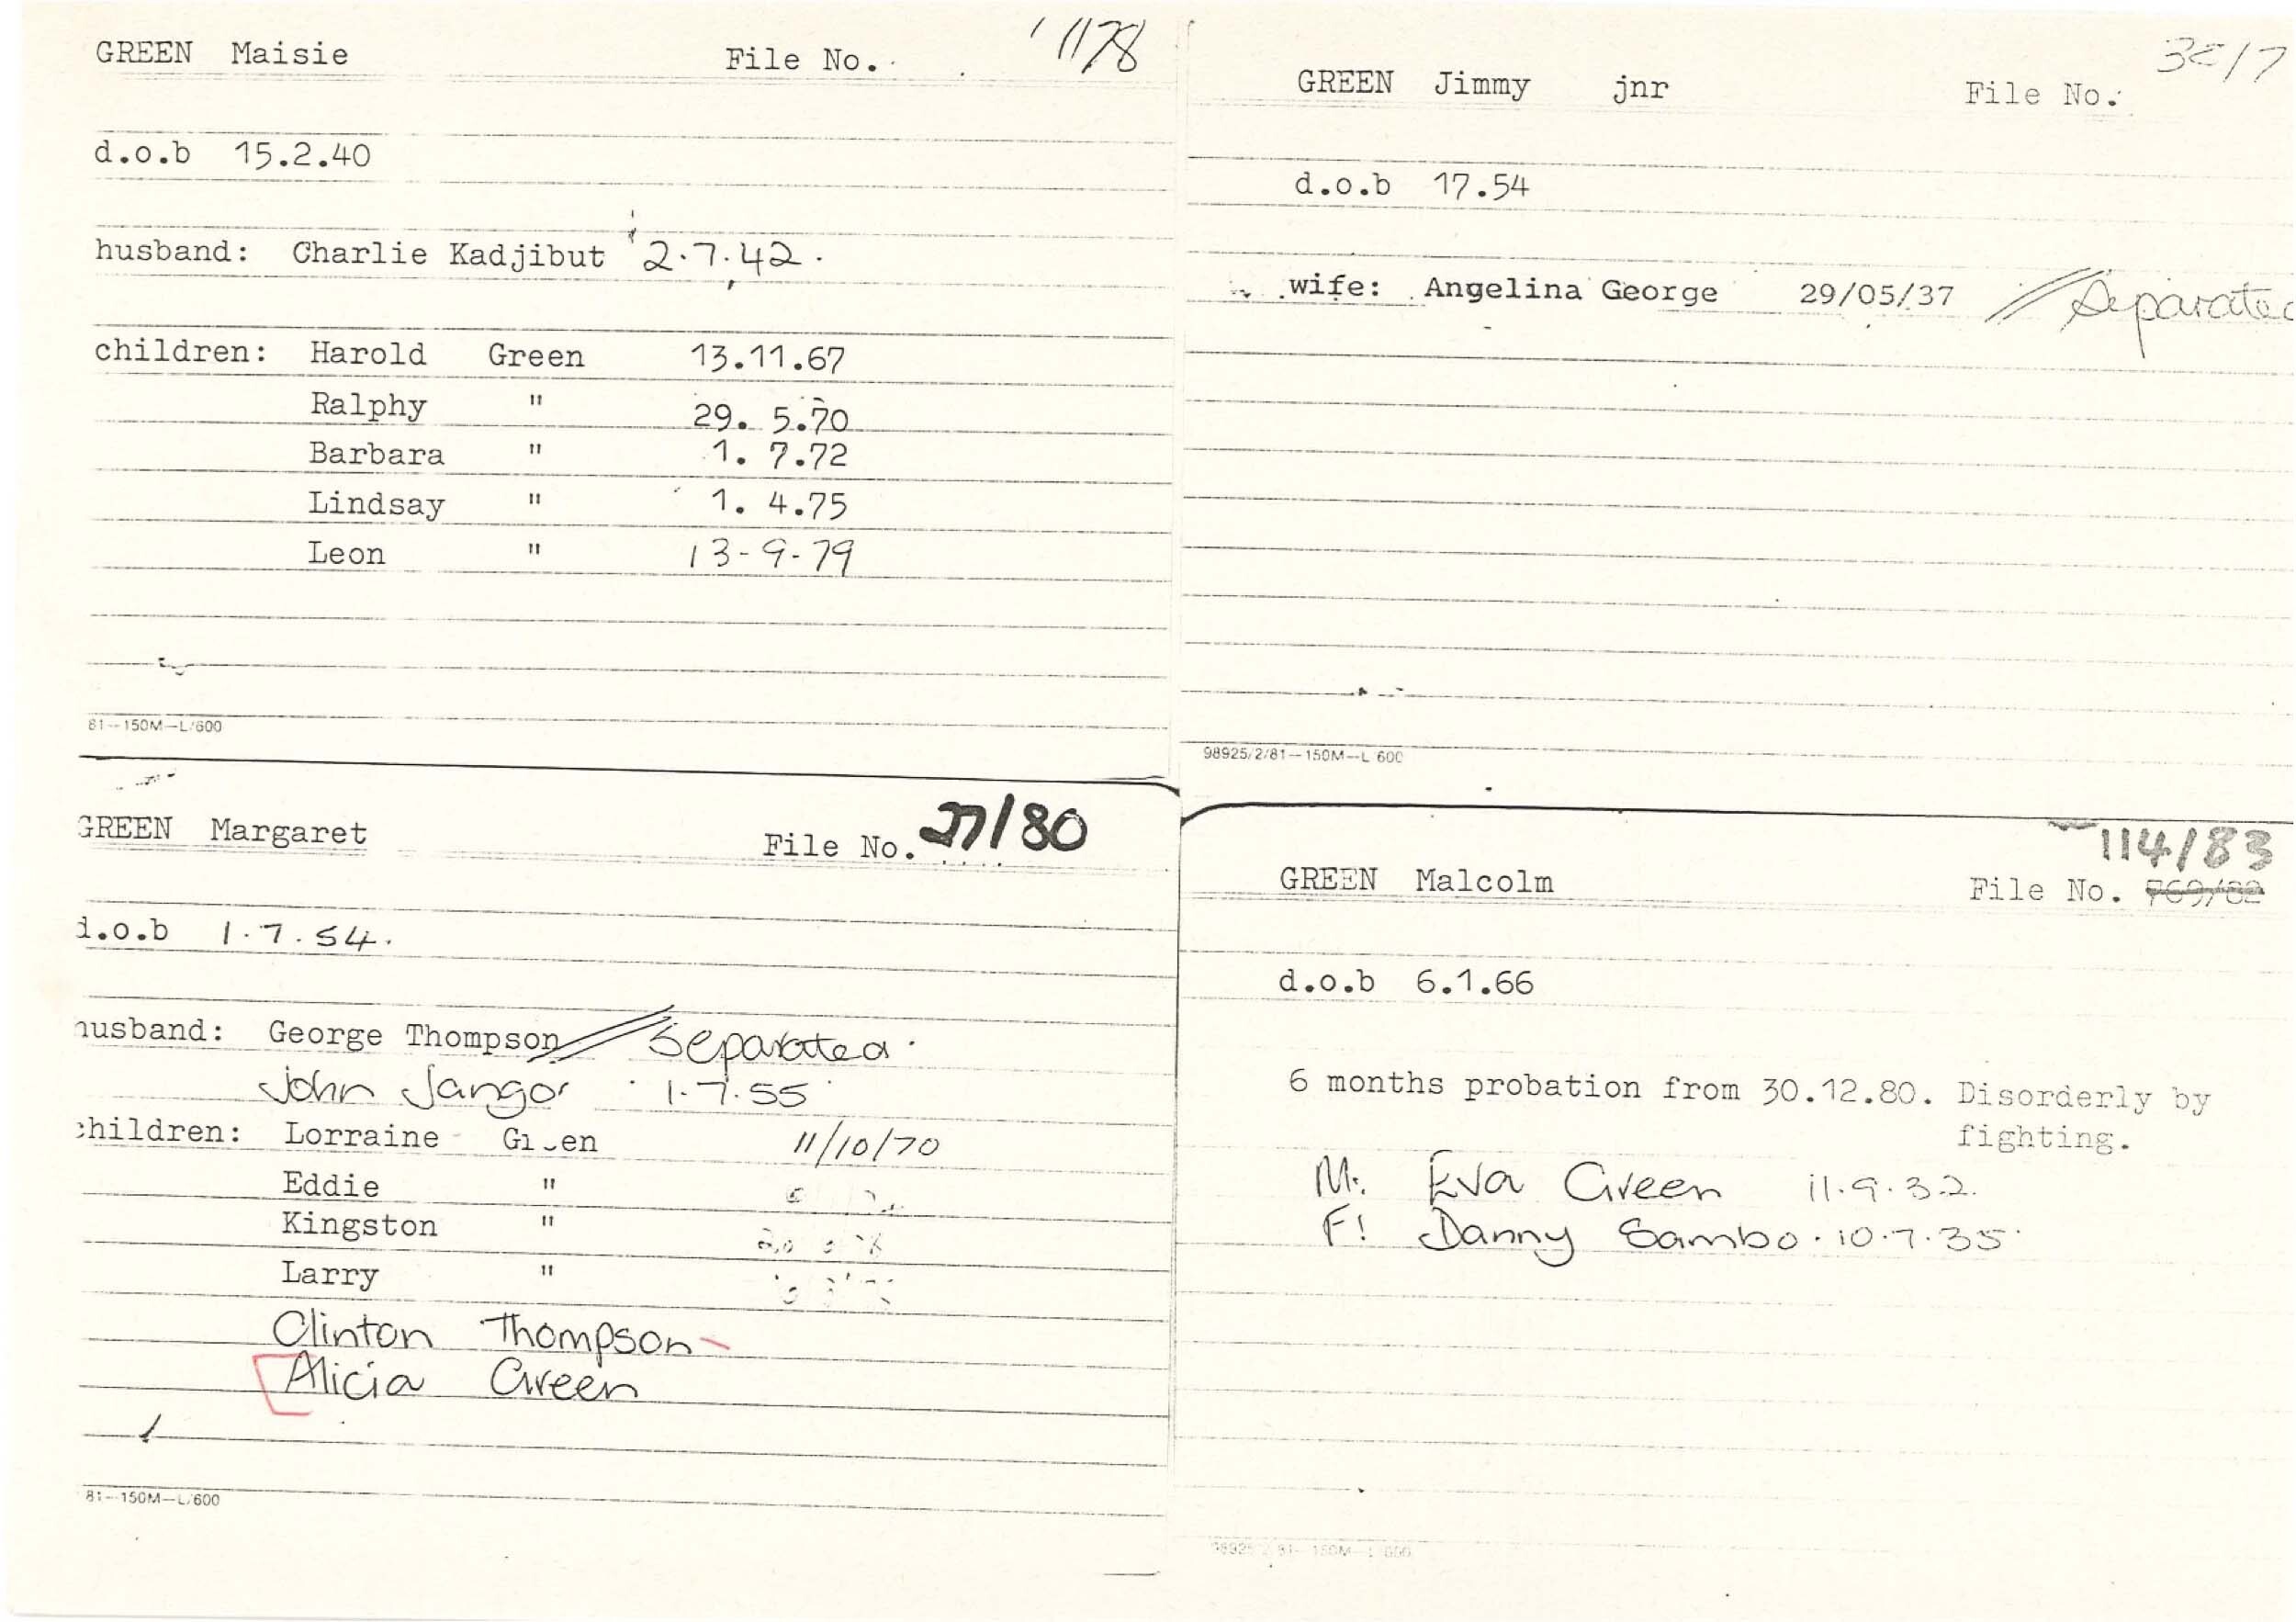 GREEN Maisie File No. 1178
d.o.b 15.2.40
husband: Charlie Kadjibut 2.7.42.
children: Harold Green 13.11.67
Ralphy " 29. 5.70
Barbara " 1. 7.72
Lindsay " 1. 4.75
Leon " 13-9-79
81-150M-L/600
GREEN Jimmy jnr File No.
d.o.b 17.54
wife: Angelina George 29/05/37 // Separated
98925/2/81-150M-L 600
GREEN Margaret File No. 27/80
d.o.b 1.7.54.
husband: George Thompson // Separated.
John Jangor 1.7.55
children: Lorraine Green 11/10/70
Eddie "
Kingston "
Larry "
Clinton Thompson
Alicia Green
81-150M-L/600
114/83
GREEN Malcolm File No.
d.o.b 6.1.66
6 months probation from 30.12.80. Disorderly by
fighting.
M. Eva Green 11.9.32.
F! Danny Sambo. 10.7.35.